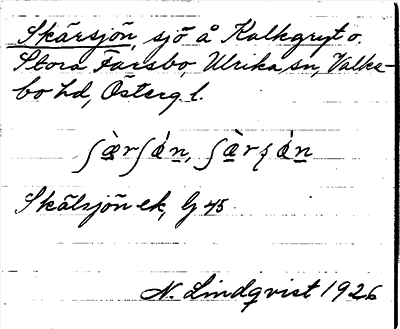 Skärsjön, sjö å Kalkgryt o.
Stora Farsbo, Ulrika sn, Valke-
bo hd, Östergl.
ʃæ̀rʃön,
Skälsjön ek, G 45
N. Lindqvist 1926